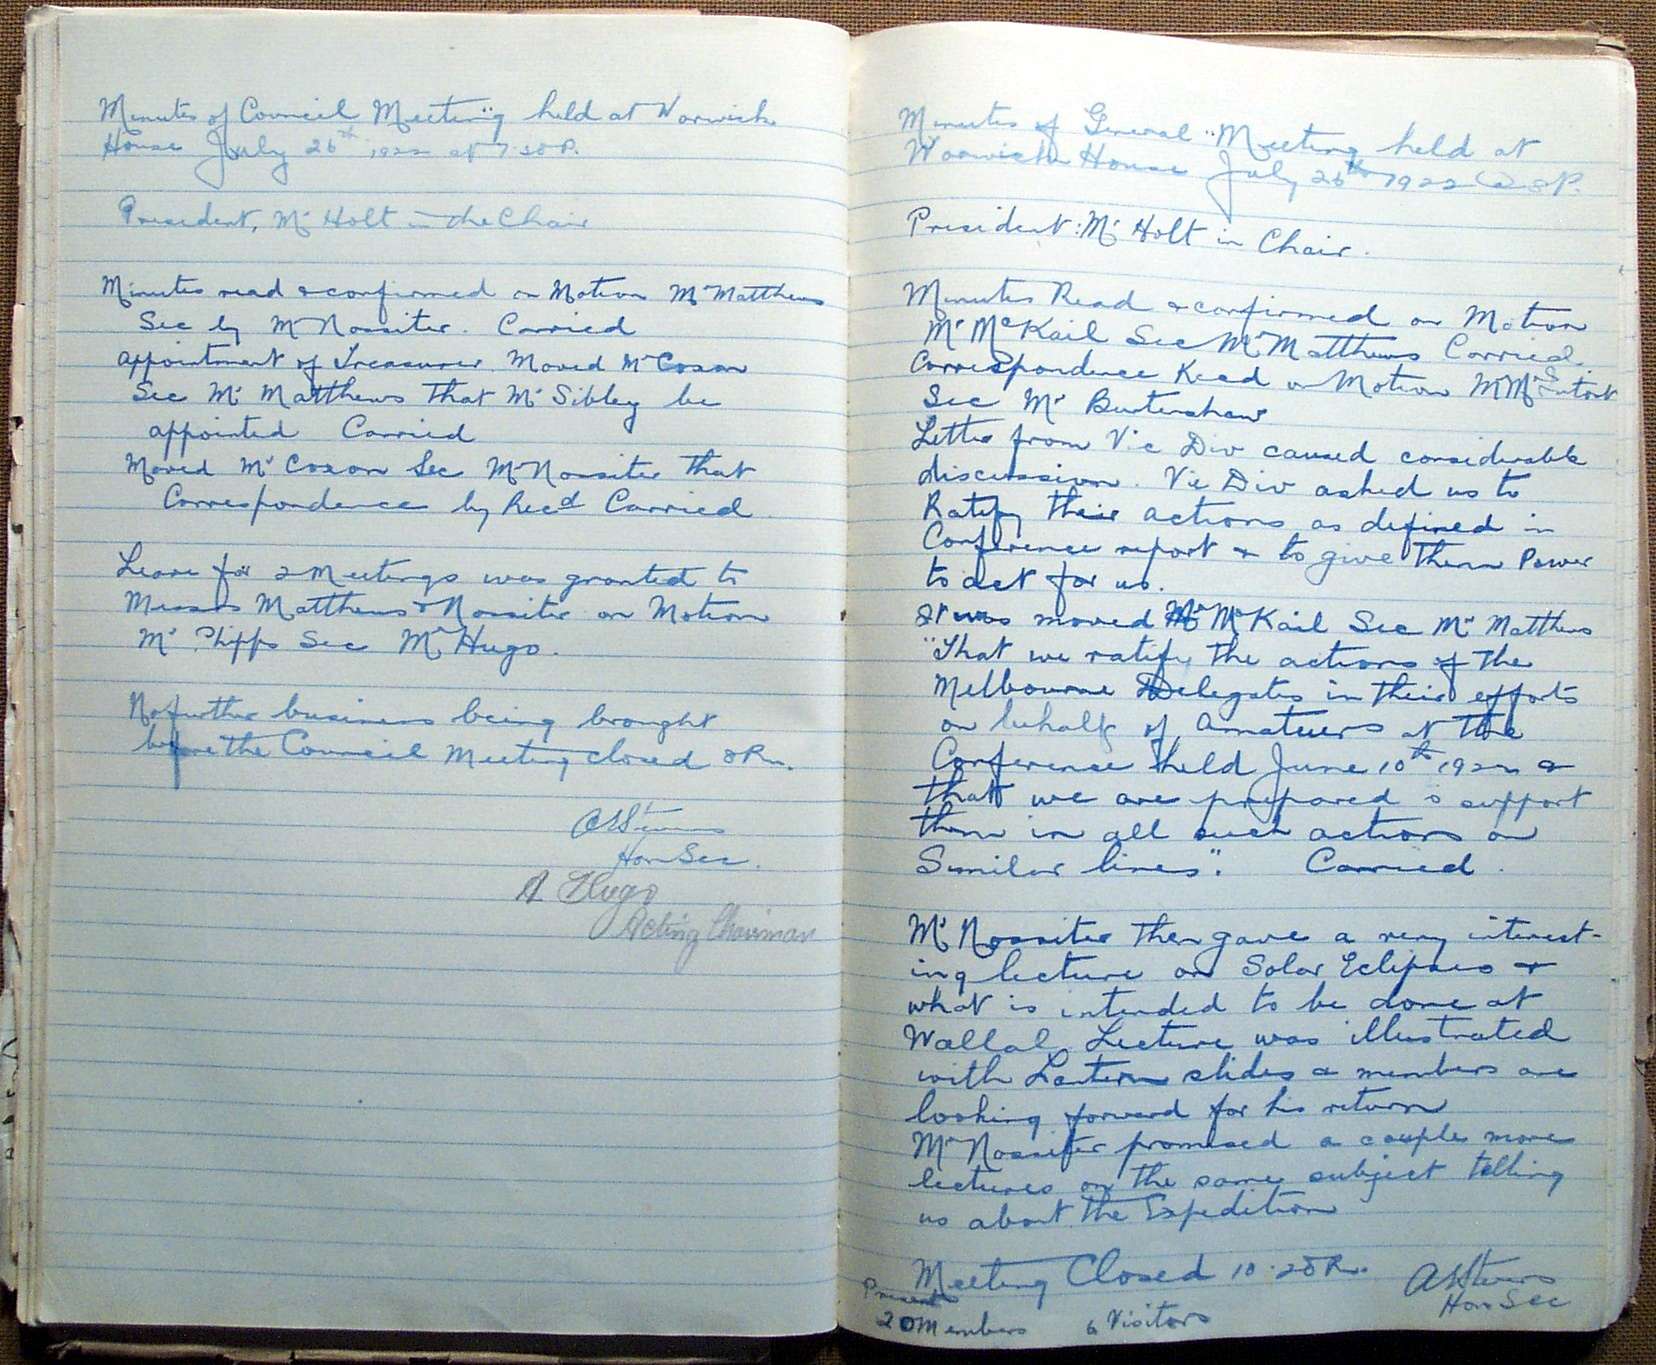 Minutes of Council Meeting held at Warwick
House July 26th 1922 at 7.30 P.
President, Mr Holt in the Chair
Minutes read & confirmed on Motion Mr Matthews
Sec by Mr Nossiter. Carried
appointment of Treasurer. Moved Mr Coxon
Sec Mr Matthews that Mr Sibley be
appointed Carried
Moved Mr Coxon Sec Mr Nossiter that
Correspondence by Recd Carried
Leave for 2 Meetings was granted to
Messrs Matthews & Nossiter on Motion
Mr Phipps Sec Mr Hugo.
No further business being brought
before the Council Meeting closed 8 Pm.
Hon Sec.
A. Hugo
Acting Chairman
Minutes of General Meeting held at
Warwick House July 26th 1922 @ 8 P.
President: Mr Holt in Chair.
Minutes Read & confirmed on Motion
Mr McKail Sec Mr Matthews Carried.
Correspondence Read on Motion Mr McIntosh
Sec Mr Buttenshaw
Letter from Vic Div caused considerable
discussion. Vic Div asked us to
Ratify their actions as defined in
Conference report & to give them Power
to act for us.
It was moved Mr McKail Sec Mr Matthews
"That we ratify the actions of the
Melbourne Delegates in their efforts
on behalf of Amateurs at the
Conference held June 10th 1922 &
that we are prepared to support
them in all such actions on
Similar lines". Carried.
Mr Nossiter then gave a very interest-
ing lecture on Solar Eclipses &
what is intended to be done at
Wallal. Lecture was illustrated
with Lantern slides & members are
looking forward for his return
Mr Nossiter promised a couple more
lectures on the same subject telling
us about the Expedition
Meeting Closed 10.20 Pm.
Hon Sec
Present
20 Members 6 Visitors